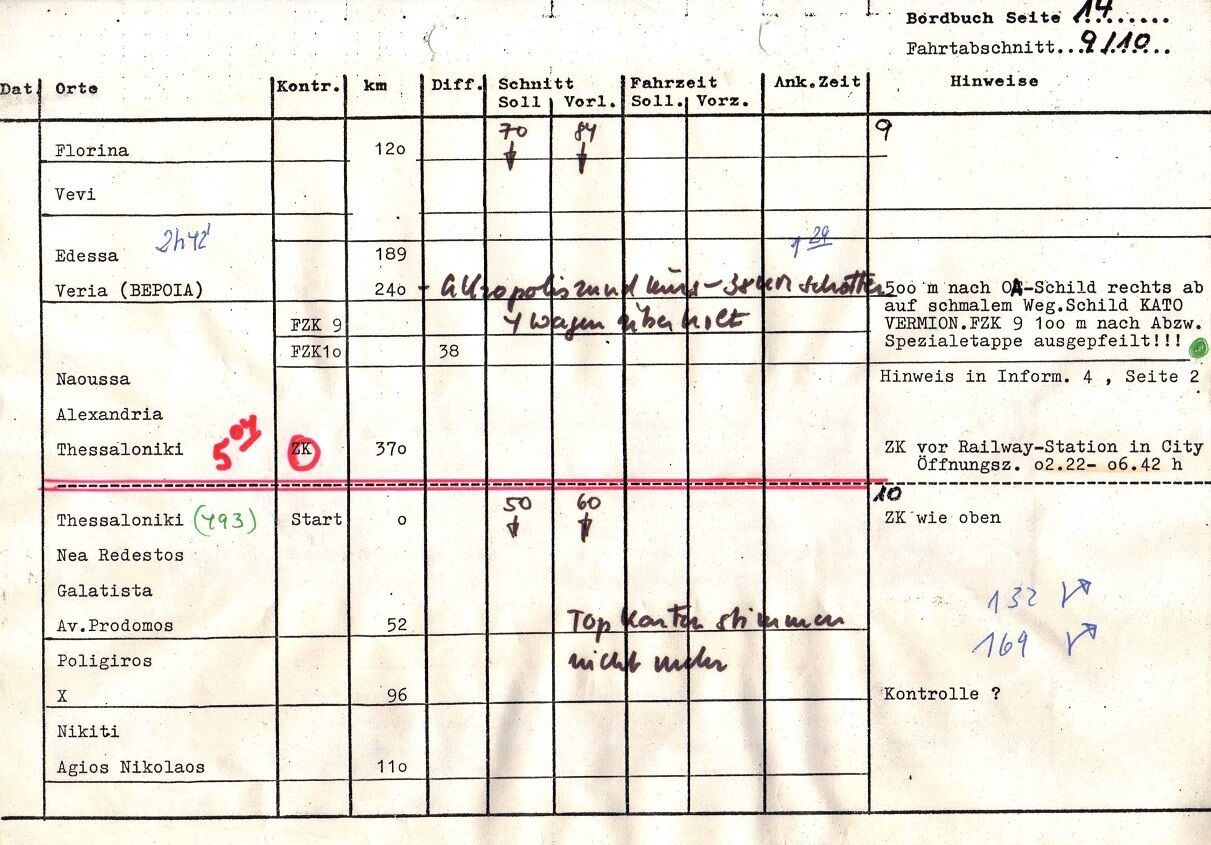 Bordbuch Seite 14
Fahrtabschnitt...9/10...
Dat. Orte Kontr. km Diff. Schnitt Fahrzeit Ank.Zeit Hinweise
Soll Vorl. Soll. Vorz.
70 84 9
Florina 12o
Vevi
2h42' 1 29
Edessa 189
Veria (BEPOIA) 24o - 38 km schotter 5oo m nach OA-Schild rechts ab
auf schmalem Weg.Schild KATO
FZK 9 4 wagen überholt VERMION.FZK 9 1oo m nach Abzw.
FZK1o 38 Spezialetappe ausgepfeilt!!!
Naoussa Hinweis in Inform. 4 , Seite 2
Alexandria
Thessaloniki 5 04 ZK 37o ZK vor Railway-Station in City
Öffnungsz. o2.22- o6.42 h
50 60 10
Thessaloniki (493) Start o ZK wie oben
Nea Redestos
Galatista 132
Av.Prodomos 52 Top Karten stimmen
169
Poligiros nicht mehr
X 96 Kontrolle ?
Nikiti
Agios Nikolaos 11o